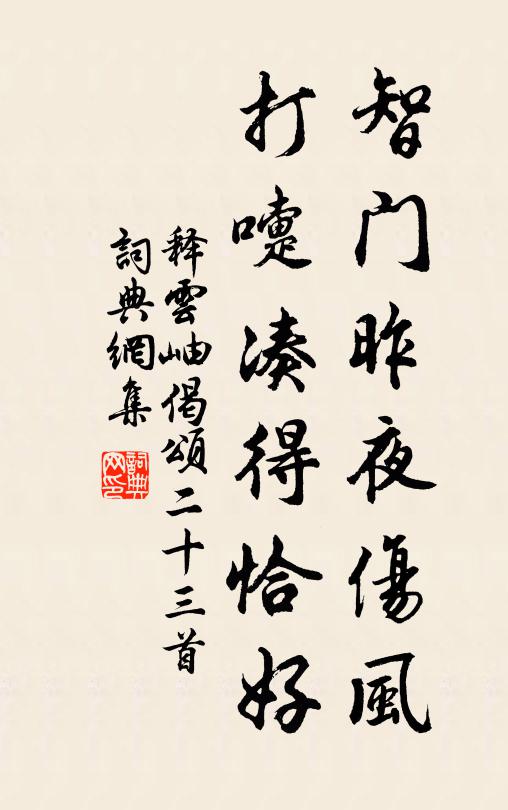 智门昨夜傷風
打嚏湊得恰好
释雲岫偈頌二十三首
詞典網集
詞典网印